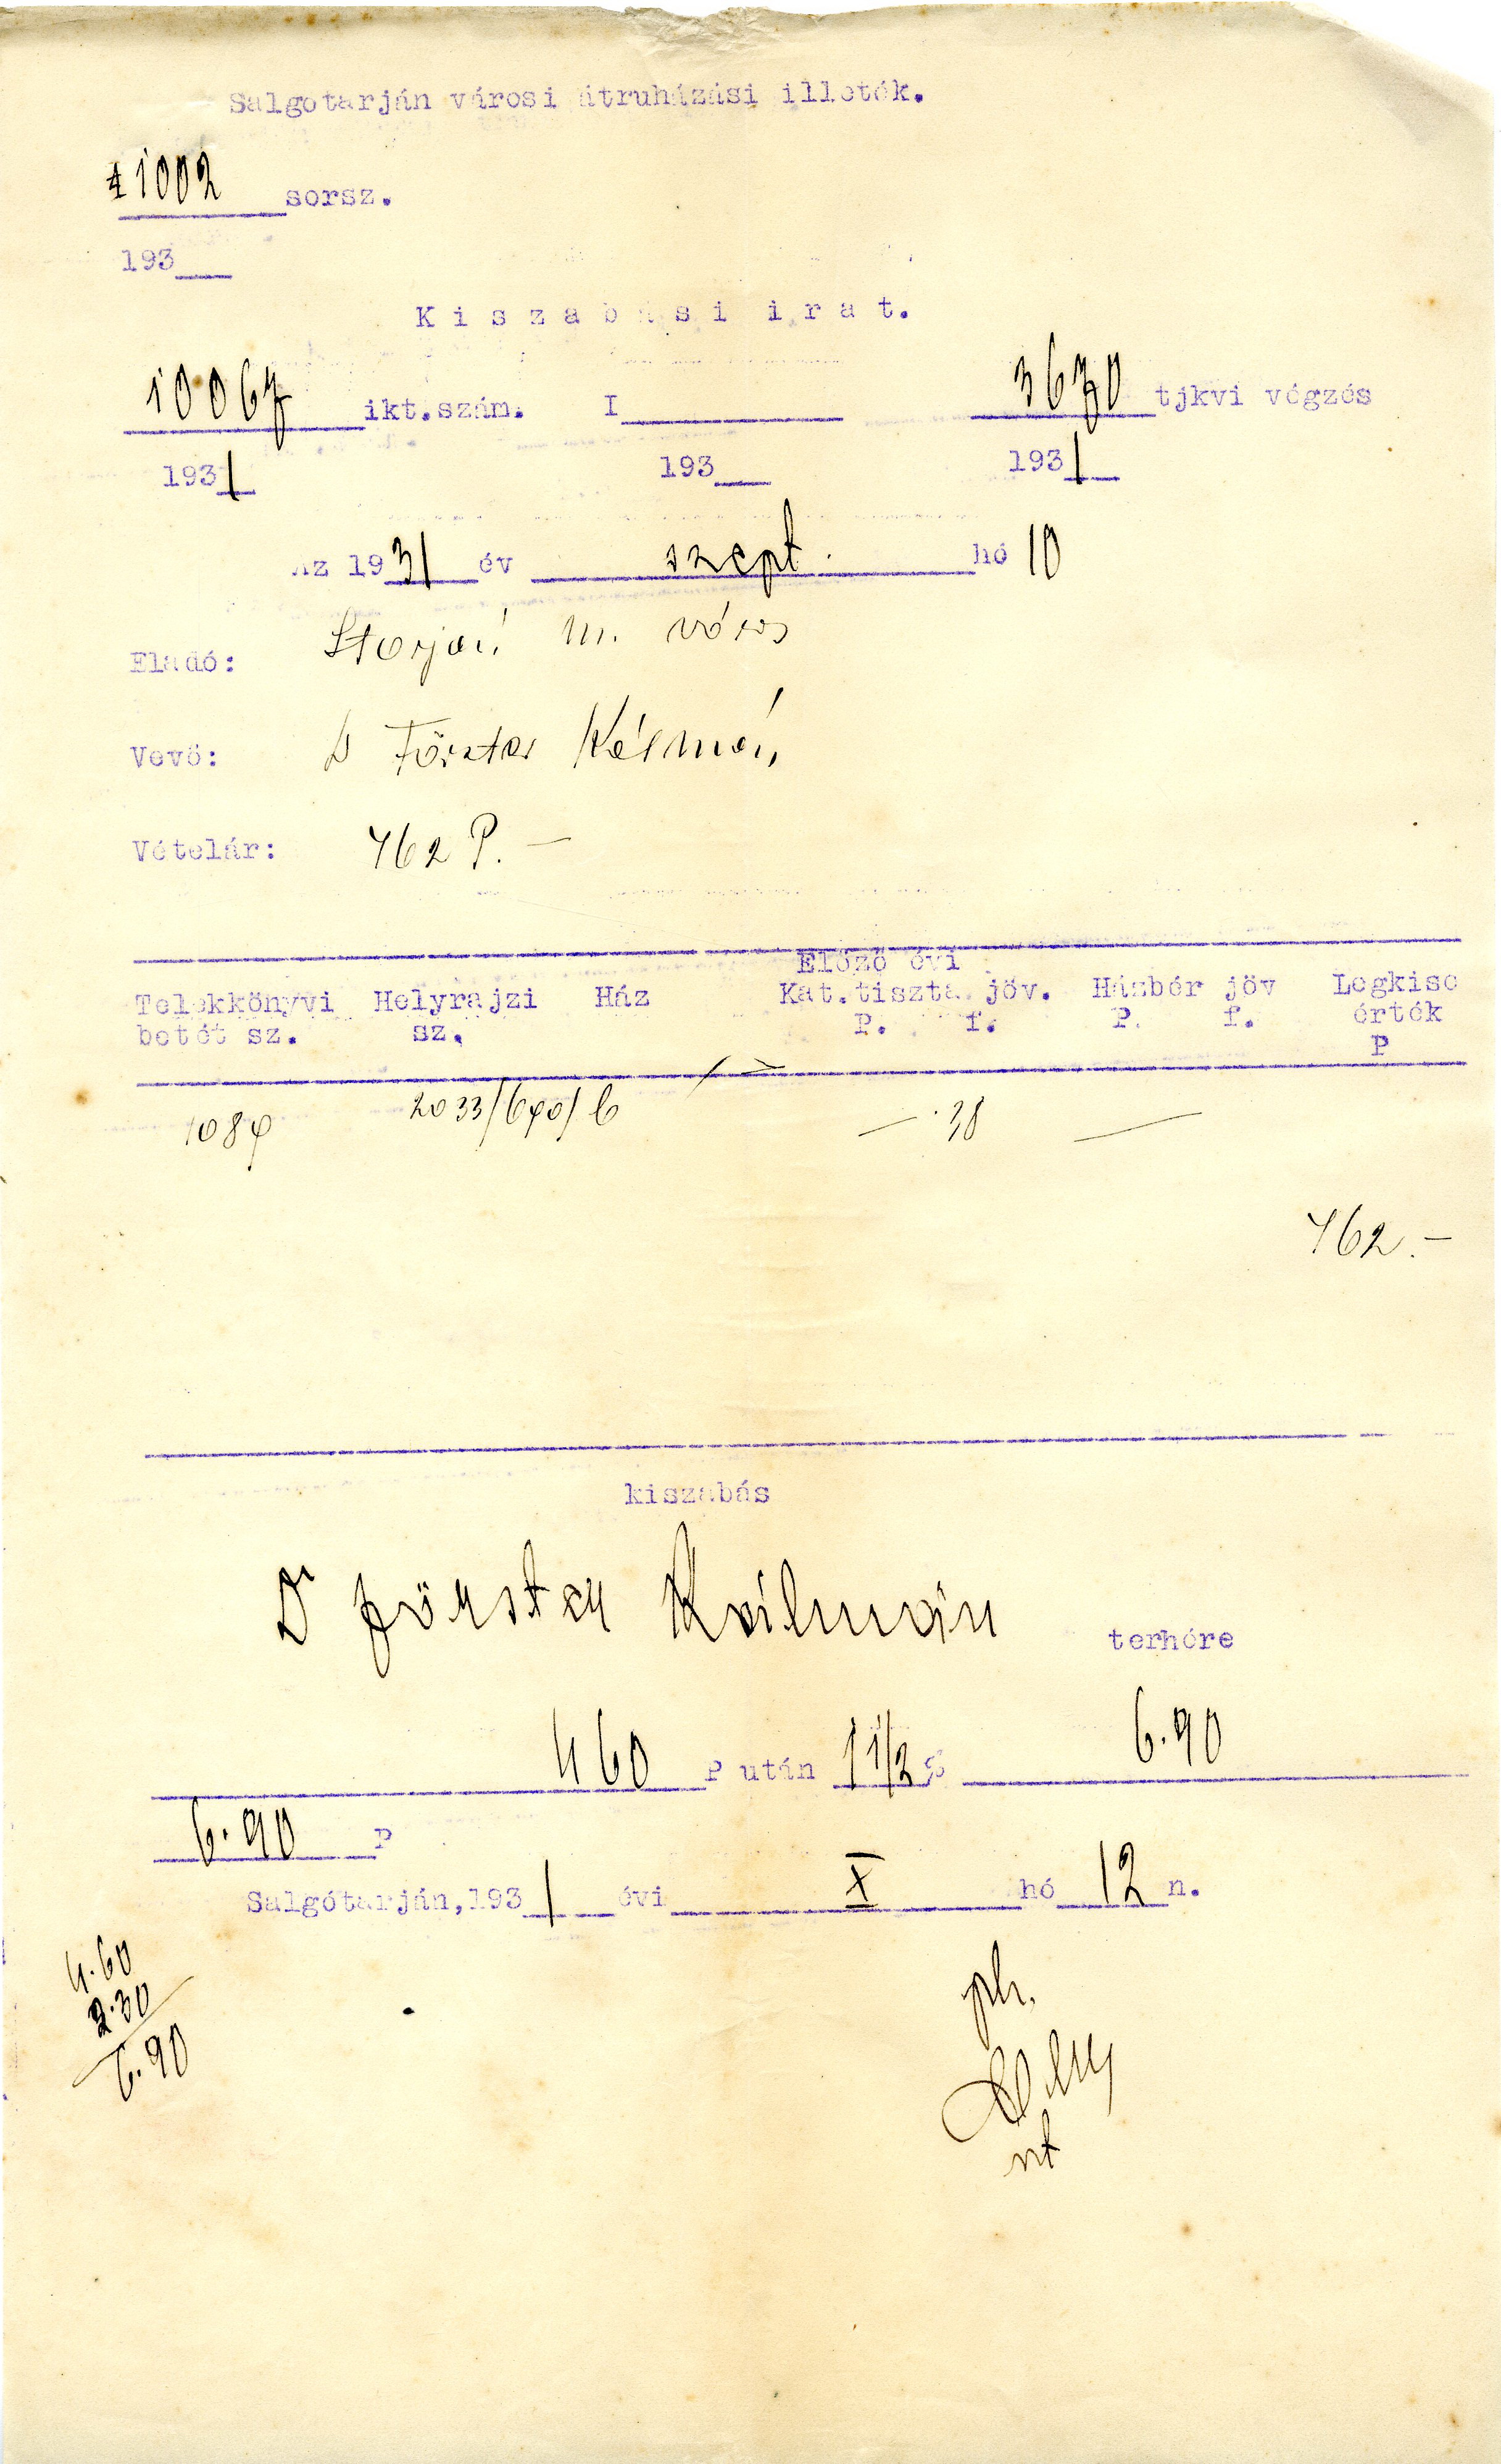 Salgotarján városi átruházási illeték.
1002 sorsz.
193
Kiszabási irat.
10067 ikt.szám. I 3630 tjkvi végzés
1931 193 1931
Az 1931 év szept. hó 10
Eladó: Starján m. város
Vevő: Dr Förster Kálmán
Vételár: 462 P. —
Előző évi
Telekkönyvi Helyrajzi Ház Kat.tiszta jöv. Házbér jöv Legkise
betét sz. sz. P. f. P. f. érték
P
1084 2033/640/b — — .38 —
462.—
kiszabás
Dr Förster Kálmán terhére
460 P után 1 1/2 % 6.90
6.90 P
Salgótarján,1931 évi X hó 12 n.
4.60
2.30
6.90
ph.